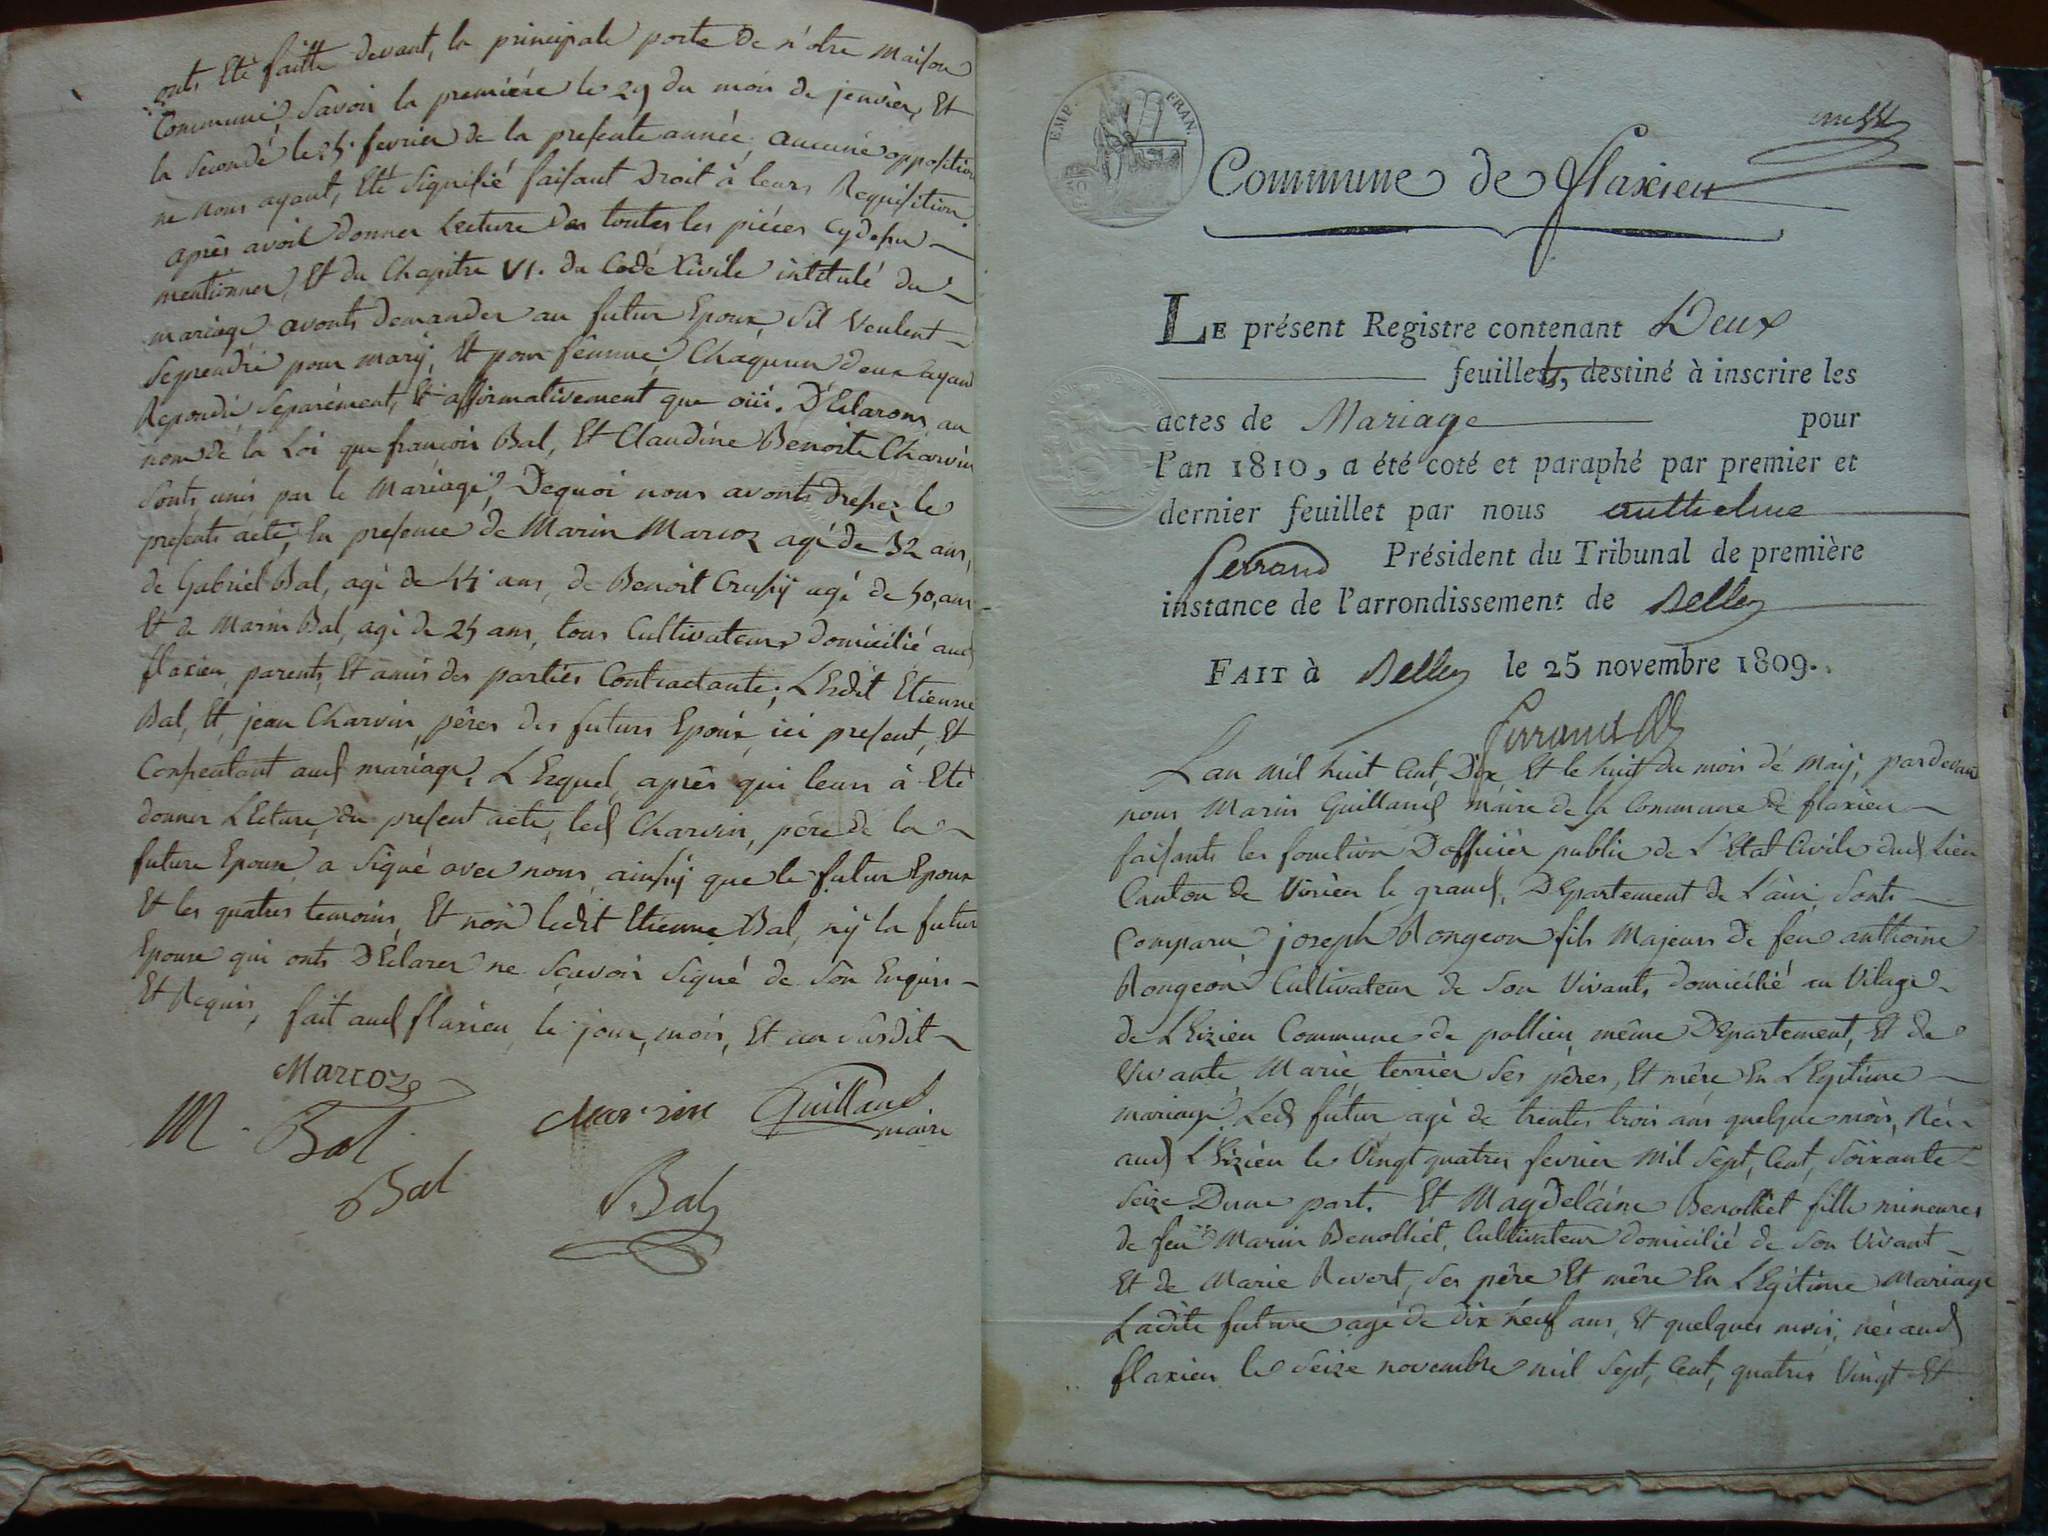 onts Eté faitte devant, la principale porte de n'otre Maison
Commune, Savoir la premiére le 29 du mois de jenvier, Et
la Seconde le 5. fevrier de la presente année, aucune opposition
ne nous ayant, Eté Signifié faisant Droit à leurs Requisition
après avoir donner Lecture Des toutes les piéces Cydessu
mentionner, Et du Chapitre VI. du Codé Civile intitulé du
mariage avonts demander au futur Epoux, Sil Veulent
Seprendre pour mary, Et pour femme, Chaquun deux ayant
Repondu Separément, Et affirmativement que oüi. D'Eclarons au
nom de la Loi que françois Bal, Et Claudine Benoite Charvin
Sonts unis par le Mariage, Dequoi nous avonts dressez le
presents acte, En presence de Marin Marcoz agé de 32 ans,
de Gabriel Bal, agé de ans, de Benoit Crussy agé de 50, ans
Et de Marin Bal, agé de 25 ans, tous Cultivateurs domicilié aud
flaxieu, parents, Et amis des parties Contractante; LEsdit Etienne
Bal, Et, jean Charvin, péres des futurs Epoux, ici present, Et
Consentant aud mariage, LEsquel après qui leurs à Eté
donner LEcture, du present acte, led Charvin, pére de la
future Epoux, a Signé avec nous, ainsy que le futur Epoux
Et les quatres temoins, Et non ledit Etienne Bal, ny la futur
Epouse qui onts DEclarer ne Scavoir Signé de Son Enquis
Et Requis, fait aud flaxieu, le jour, mois, Et an susdit
Marcoz
M. Bal Guilland
maire
Bal Bal
EMP. FRAN.
Commune de flaxieu
LE présent Registre contenant Deux
feuillets, destiné à inscrire les
actes de Mariage pour
l'an 1810, a été coté et paraphé par premier et
dernier feuillet par nous anthelme
ferrand Président du Tribunal de première
instance de l'arrondissement de Belley
FAIT à Belley le 25 novembre 1809.
Lan mil huit Cent Dix Et le huit du mois dé may, pardevant
nous Marin Guilland maire de la Commune de flaxieu
faisants les fonction Dofficier public de L'Etat Civile dud Lieu
Canton de Virieu le grand, DEpartement de L'ain, Sonts
Comparu joseph Rongeon fils Majeurs de feu anthoine
Rongeon Cultivateur de Son Vivant, domicilié au Vilage
de LEizieu Commune de pollieu, même DEpartement, Et de
Vivante Marie terrier Ses péres, Et mére En LEgitime
mariage, Led futur agé de trentes trois ans quelque mois, Né
aud LEizieu le Vingt quatres fevrier Mil Sept, Cent, Soixante
Seize Dune part. Et Magdelaine Benolliet fille mineures
de feu Marin Benolliet, Cultivateur domicilié de Son Vivant
Et de Marie Revert, Ses pére Et mére En LEgitime Mariage
Ladite future agé de dix neuf ans, Et quelques mois, née aud
flaxieu le Seize novembre mil Sept, Cent, quatres Vingt Et